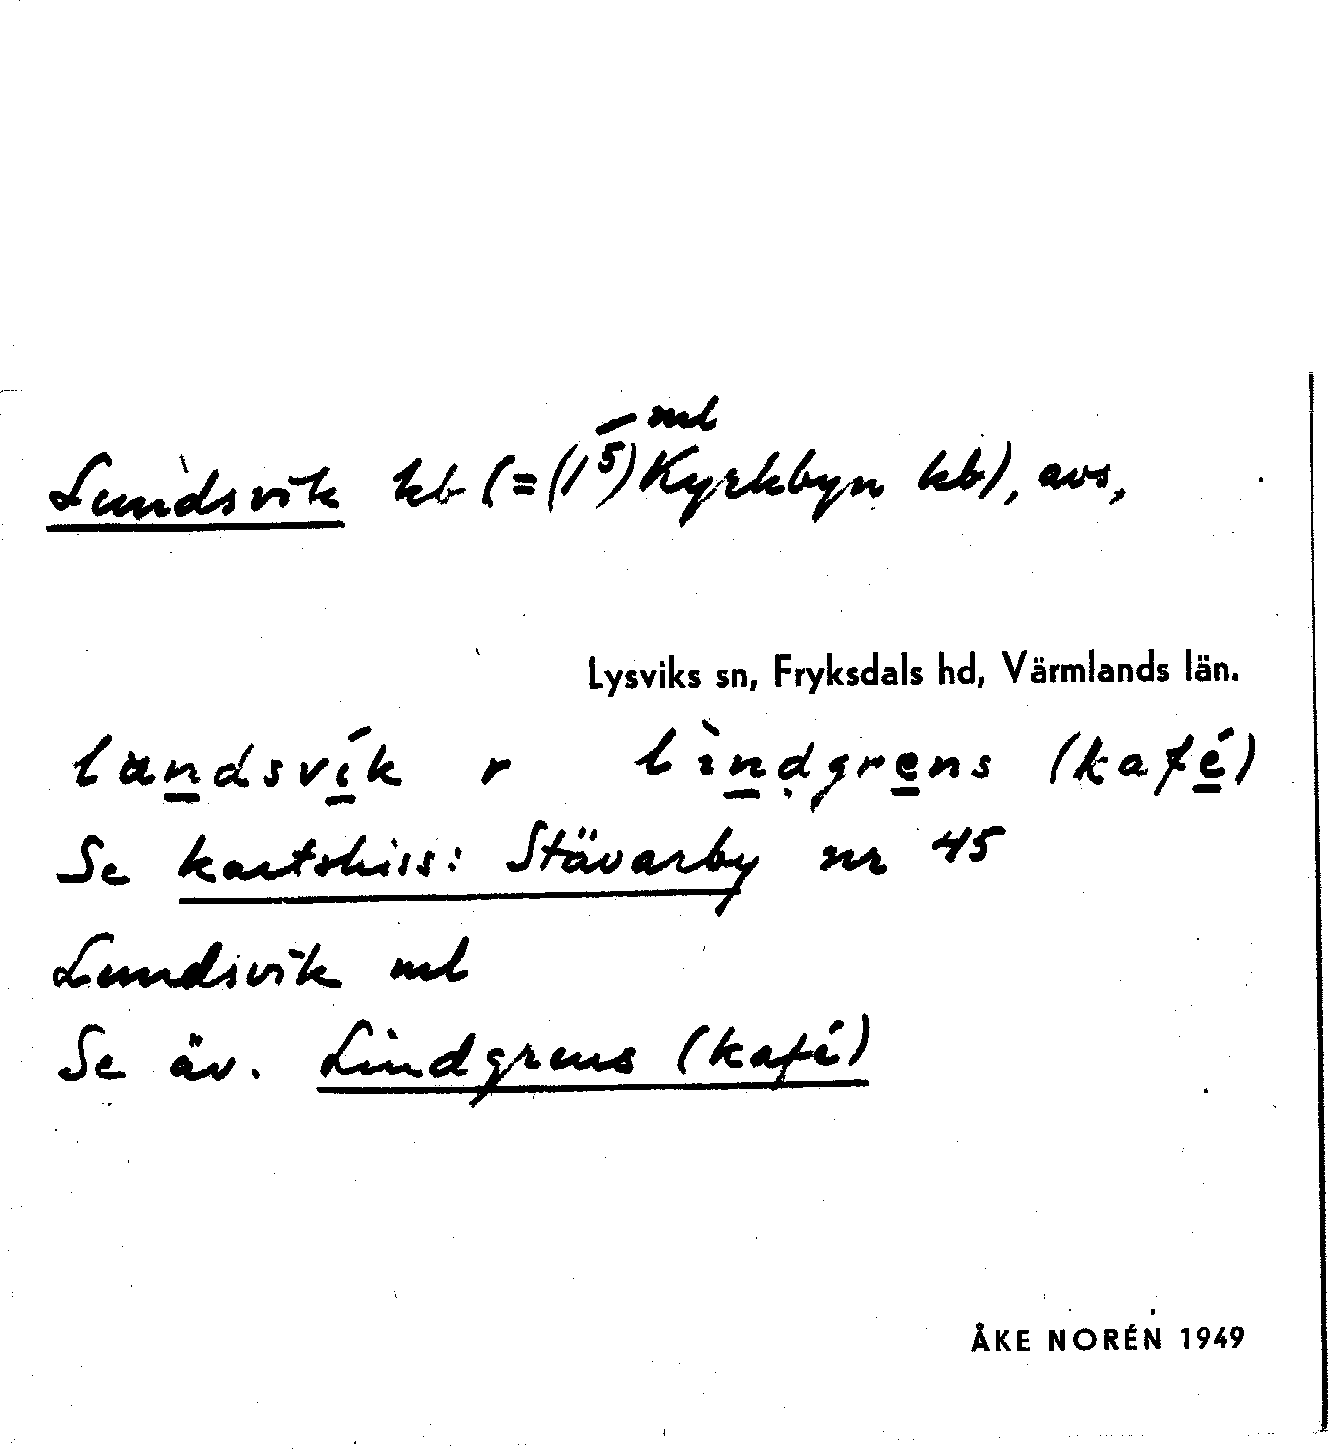 Lundsvik kb (=(1⁵) Kyrkbyn kb), avs,
ml
Lysviks sn, Fryksdals hd, Värmlands län.
landsvík r lìndgrens (kafé)
Se kartskiss: Stävarby nr 45
Lundsvik ml
Se äv. Lindgrens (kafé)
ÅKE NORÉN 1949